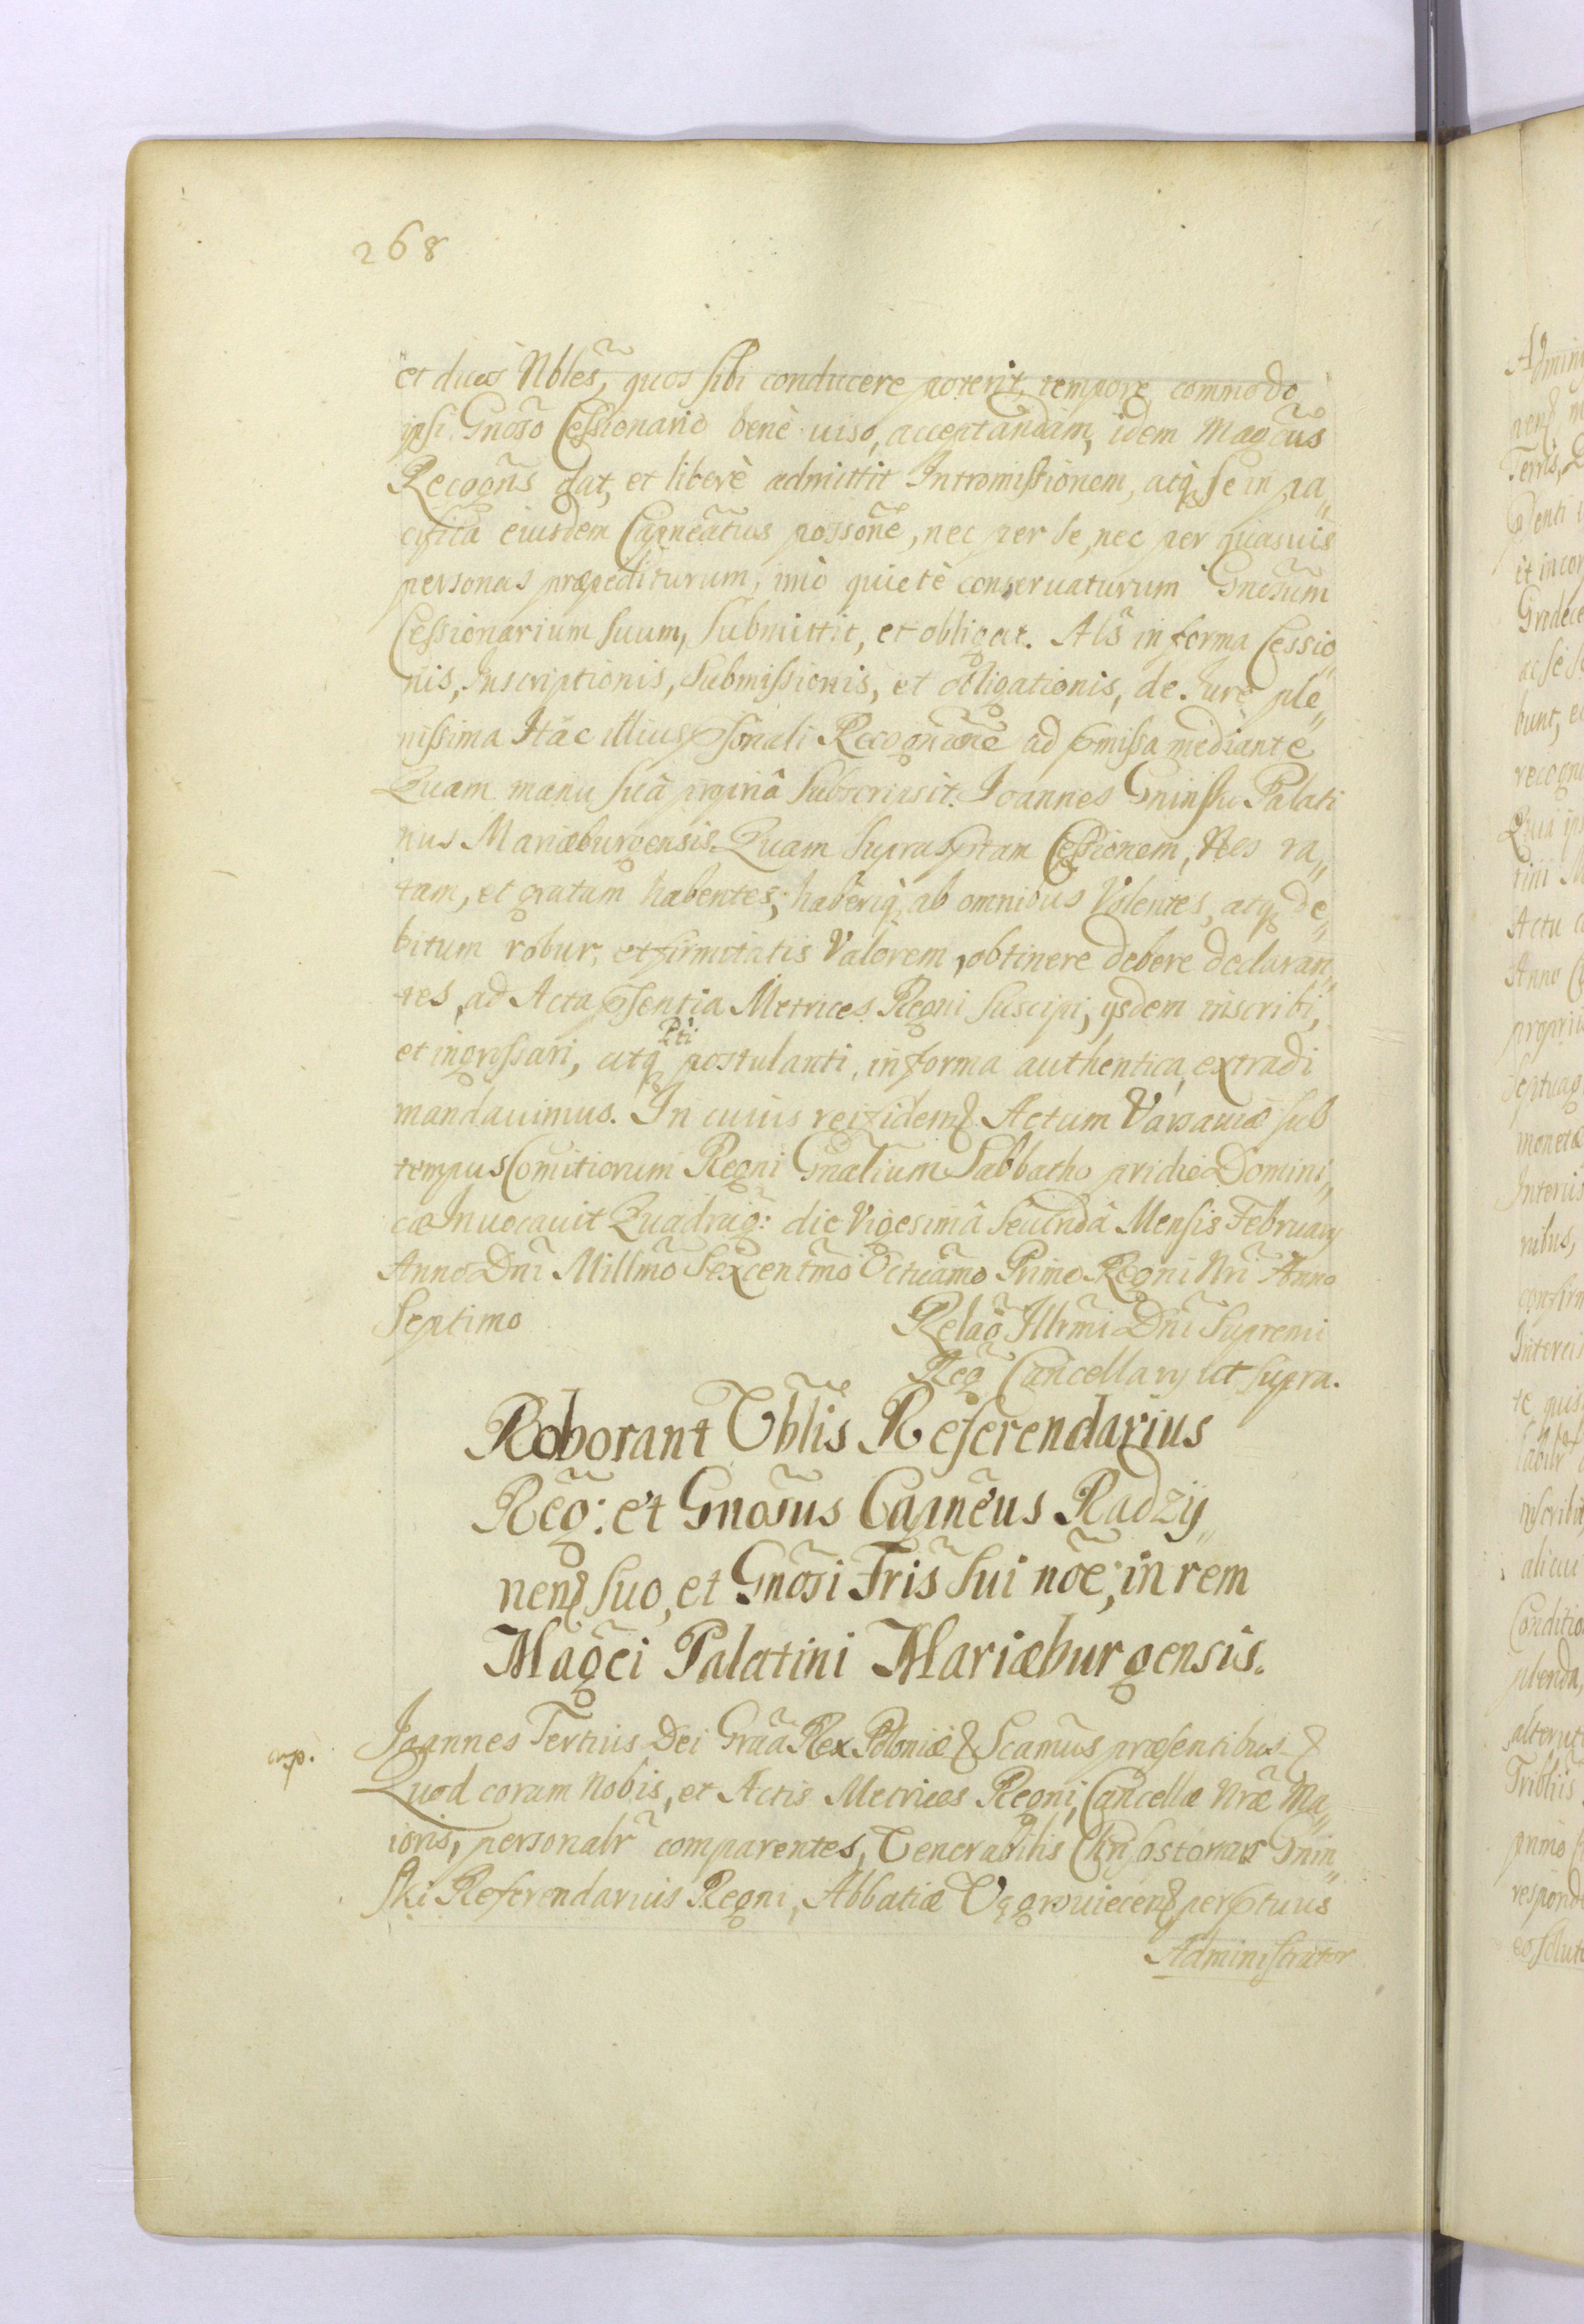 268
et duos Nbles̃, quos sibi conducere poterit, tempore commodo
ipsi Gnõso Cessionario benè uiso, acceptandam, idem Magcũs
Recogñs dat, et liberè admittit Intromissionem, atq; se in pa„
cifica eiusdem Capneãtus possõne, nec per se, nec per quasuis
personas præpediturum, imò quietè conseruaturum Gnosũm
Cessionarium suum, submittit, et obligat. Als̃ in forma Cessio„
nis, Inscriptionis, Submissionis, et obligationis, de Iure ple„
nissima Hãc illius psonali Recognitõne ad pmissa mediante
Quam manu suâ propriâ subscripsit. Joannes Gninski Palati
nus Mariæburgensis. Quam suprasptam Cessionem, Nos ra„
tam, et gratam habentes, haberiq; ab omnibus Volentes, atq; de„
bitum robur, et firmitatis Valorem, obtinere debere declaran„
tes, ad Acta psentia Metrices Regni suscipi, ijsdem inscribi,
et ingrossari, atq; Pti postulanti, in forma authentica, extradi
mandauimus. In cuius rei fidem & Actum Varsauiæ sub
tempus Comitiorum Regni Gnalium Sabbatho pridie Domini„
cæ Inuocauit Quadrag̃: die Vigesimâ Secundâ Mensis February
Anno Dñi Millm̃o Sexcentm̃o Octuãmo Primo Regni Nri Anno
Septimo
Relaõ Illrm̃i Dñi Supremi
Reg̃ Cancellary ut supra.
Roborant Vblis̃ Referendarius
Reg̃: et Gnõsus Capnẽus Radzy„
nen& suo, et Gnõsi Fris̃ sui nõe, in rem
Magci Palatini Mariæburgensis.
Joannes Tertius Dei Grãa Rex Poloniæ & Scamũs præsentibus &
Quod coram Nobis, et Actis Metrices Regni, Cancellæ Nræ Ma„
ioris, personalr̃ comparentes, Venerabilis Chrisostomus Gnin„
ski Referendarius Regni, Abbatiæ Vągrowiecen& perptuus
Administrator